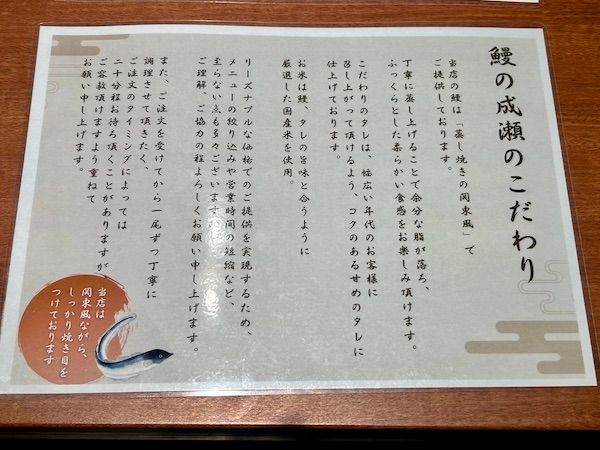 鰻の成瀬のこだわり
当店の鰻は「蒸し焼きの関東風」で
ご提供しております。
丁寧に蒸し上げることで余分な脂が落ち、
ふっくらとした柔らかい食感をお楽しみ頂けます。
こだわりのタレは、幅広い年代のお客様に
召し上がって頂けるよう、コクのある甘めのタレに
仕上げております。
お米は鰻、タレの旨味と合うように
厳選した国産米を使用。
リーズナブルな価格でのご提供を実現するため、
メニューの絞り込みや営業時間の短縮など、
至らない点も多々ございます
ご理解、ご協力の程よろしくお願い申し上げます。
また、ご注文を受けてから一尾ずつ丁寧に
調理させて頂きたく、
ご注文のタイミングによっては
二十分程お待ち頂くことがありますが、
ご容赦頂けますよう重ねて
お願い申し上げます。
当店は
関東風ながら、
しっかり焼き目を
つけております